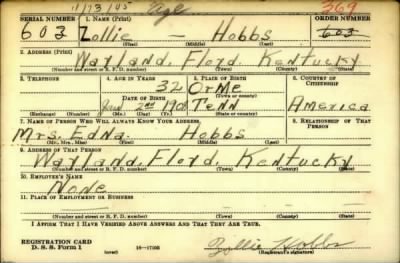 11/23/45 Age 369
SERIAL NUMBER 1. NAME (Print) ORDER NUMBER
603 Zollie — Hobbs 603
(First) (Middle) (Last)
2. ADDRESS (Print)
Wayland, Floyd, Kentucky
(Number and street or R. F. D. number) (Town) (County) (State)
3. TELEPHONE 4. AGE IN YEARS 5. PLACE OF BIRTH 6. COUNTRY OF CITIZENSHIP
32 Orme
DATE OF BIRTH (Town or county)
2nd 1908 Tenn America
(Exchange) (Number) (Mo.) (Day) (Yr.) (State or country)
7. NAME OF PERSON WHO WILL ALWAYS KNOW YOUR ADDRESS 8. RELATIONSHIP OF THAT PERSON
Mrs. Edna. Hobbs
(Mr., Mrs., Miss) (First) (Middle) (Last)
9. ADDRESS OF THAT PERSON
Wayland, Floyd, Kentucky
(Number and street or R. F. D. number) (Town) (County) (State)
10. EMPLOYER'S NAME
None
11. PLACE OF EMPLOYMENT OR BUSINESS
(Number and street or R. F. D. number) (Town) (County) (State)
I AFFIRM THAT I HAVE VERIFIED ABOVE ANSWERS AND THAT THEY ARE TRUE.
REGISTRATION CARD
D. S. S. Form 1 (over) Zollie Hobbs
(Registrant's signature)